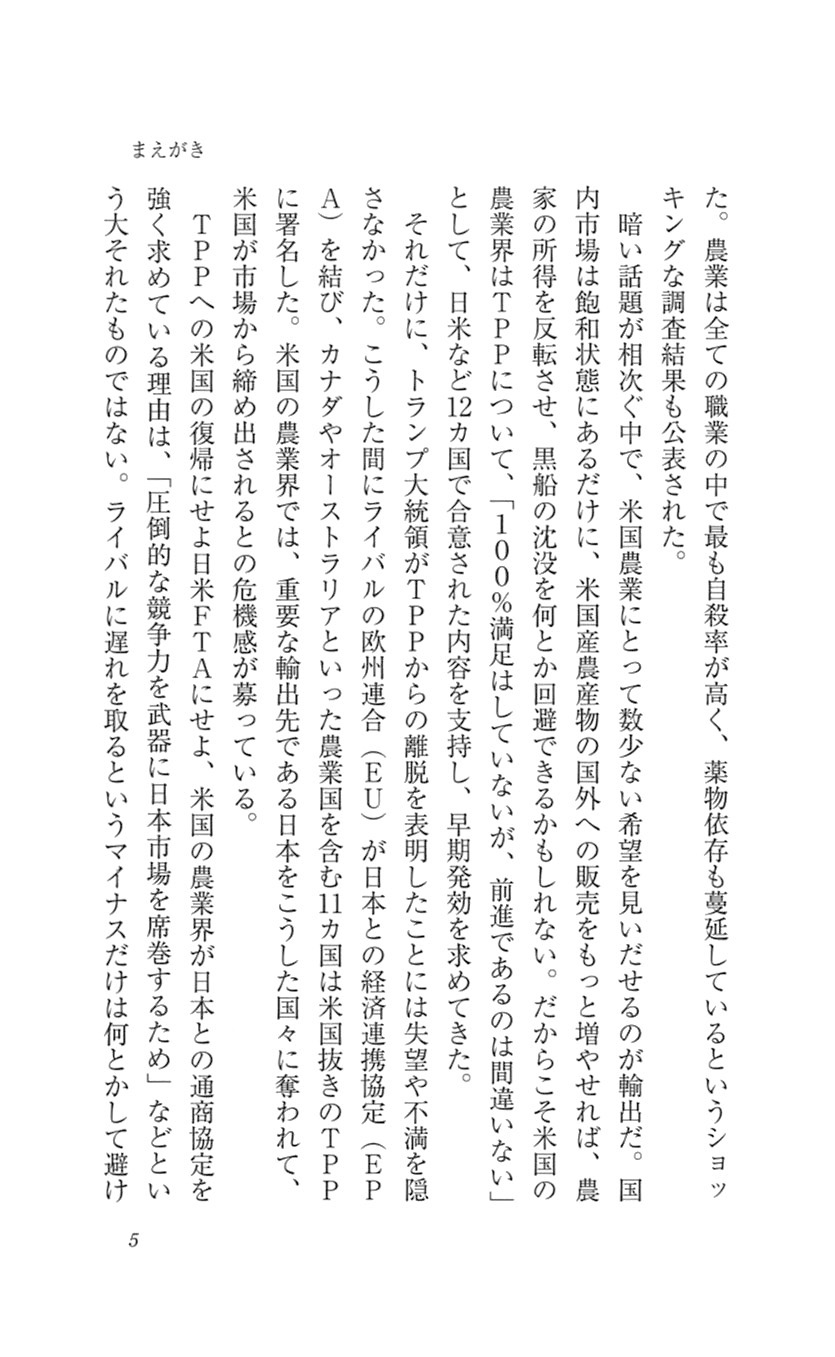 まえがき
た。農業は全ての職業の中で最も自殺率が高く、薬物依存も蔓延しているというショッ
キングな調査結果も公表された。
　暗い話題が相次ぐ中で、米国農業にとって数少ない希望を見いだせるのが輸出だ。国
内市場は飽和状態にあるだけに、米国産農産物の国外への販売をもっと増やせれば、農
家の所得を反転させ、黒船の沈没を何とか回避できるかもしれない。だからこそ米国の
農業界はＴＰＰについて、「１００％満足はしていないが、前進であるのは間違いない」
として、日米など12カ国で合意された内容を支持し、早期発効を求めてきた。
　それだけに、トランプ大統領がＴＰＰからの離脱を表明したことには失望や不満を隠
さなかった。こうした間にライバルの欧州連合（ＥＵ）が日本との経済連携協定（ＥＰ
Ａ）を結び、カナダやオーストラリアといった農業国を含む11カ国は米国抜きのＴＰＰ
に署名した。米国の農業界では、重要な輸出先である日本をこうした国々に奪われて、
米国が市場から締め出されるとの危機感が募っている。
　ＴＰＰへの米国の復帰にせよ日米ＦＴＡにせよ、米国の農業界が日本との通商協定を
強く求めている理由は、「圧倒的な競争力を武器に日本市場を席巻するため」などとい
う大それたものではない。ライバルに遅れを取るというマイナスだけは何とかして避け
5